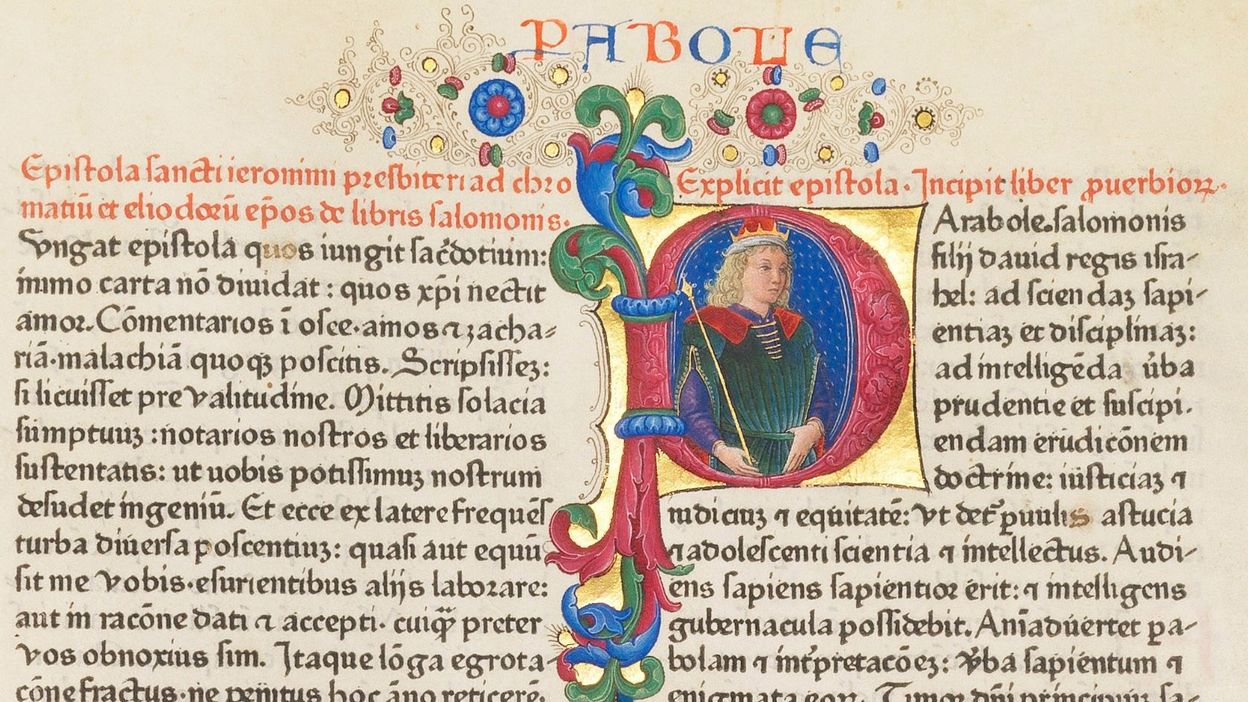 PABOLE
Epistola sancti ieronimi presbiteri ad chro
matiū et eliodorū ep̄os de libris salomonis.
Iungat epistola quos iungit sac̄dotium:
immo carta nō diuidat: quos xp̄i nectit
amor. Cōmentarios ī osce. amos ⁊ zacha-
riā. malachiā quoqꝫ poscitis. Scripsisseꝫ:
si licuisset pre valitudine. Mittitis solacia
sumptuuꝫ: notarios nostros et librarios
sustentatis: ut uobis potissimuꝫ nostrum
desudet ingeniū. Et ecce ex latere frequēs
turba diuersa poscentiuꝫ: quasi aut equū
sit me vobis. esurientibus alijs laborare:
aut in racōne dati ⁊ accepti. cuiq̄ꝫ preter
vos obnoxius sim. Itaque lōga egrota
cōne fractus. ne penitus hoc āno reticerē.
Explicit epistola. Incipit liber ꝓuerbioꝝ.
Arabole salomonis
filij dauid regis isra-
hel: ad sciendaꝫ sapi-
entiaꝫ et disciplinaꝫ:
ad intelligēda v̄ba
prudentie et suscipi-
endam erudicōnem
doctrine: iusticiaꝫ ⁊
iudiciuꝫ ⁊ equitatē: vt det̄ ꝑuulis astucia
⁊ adolescenti scientia ⁊ intellectus. Audi-
ens sapiens sapientior erit: ⁊ intelligens
gubernacula possidebit. Aniaduertet pa-
bolam ⁊ int̄pretacōeꝫ: v̄ba sapientum ⁊
enigmata eoꝝ. Timor dn̄i principiuꝫ sa-